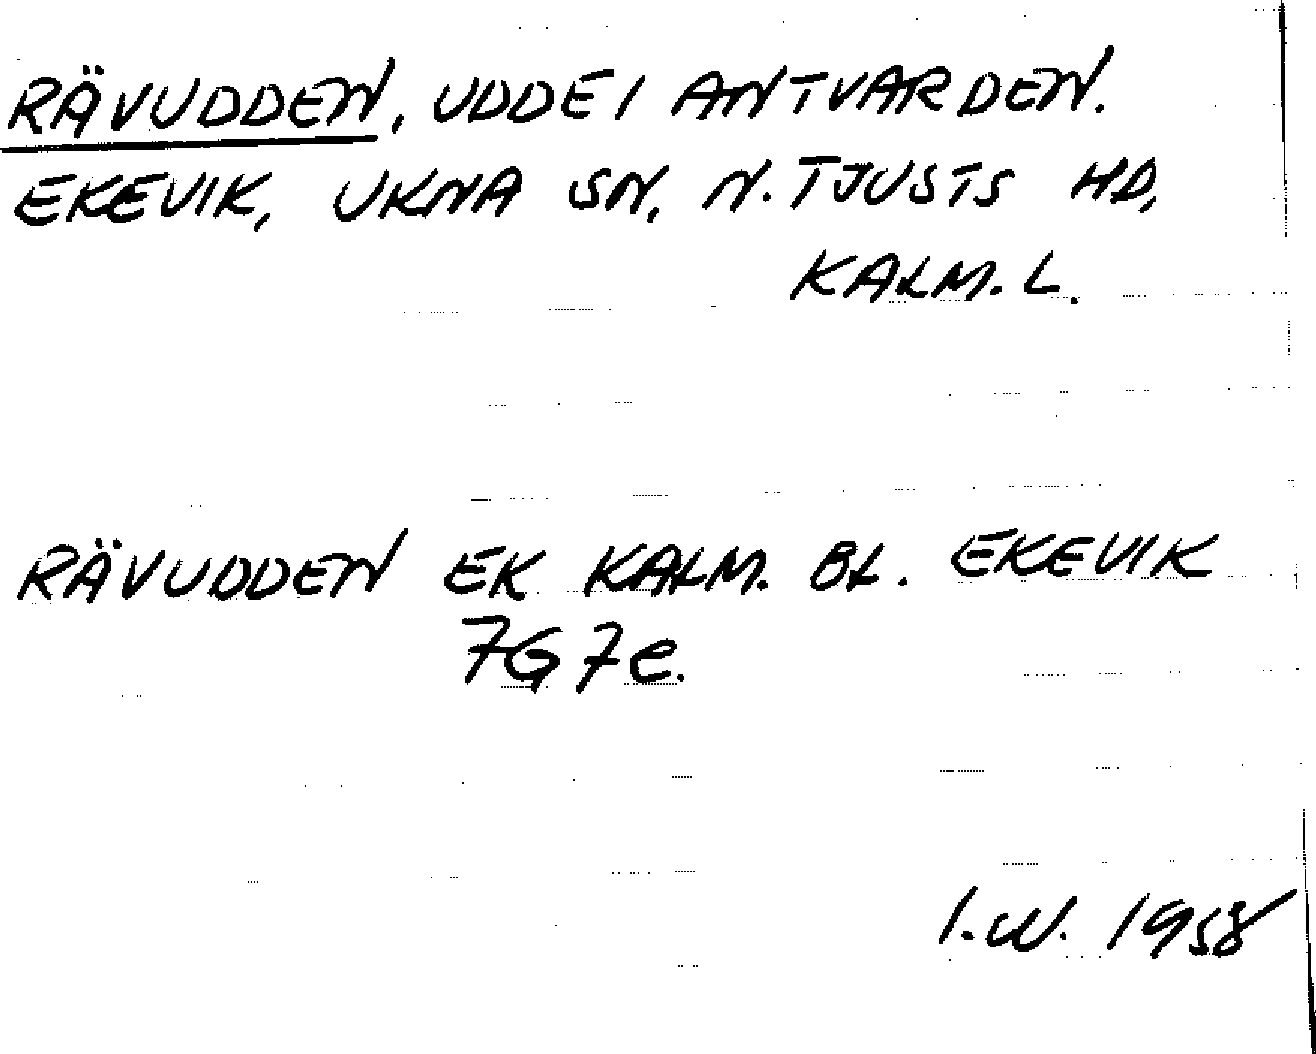 RÄVUDDEN, UDDE I ANTVARDEN.
EKEVIK, UKNA SN, N. TJUSTS HD,
KALM. L.
RÄVUDDEN EK KALM. BL. EKEVIK
7G7e.
I.W. 1958